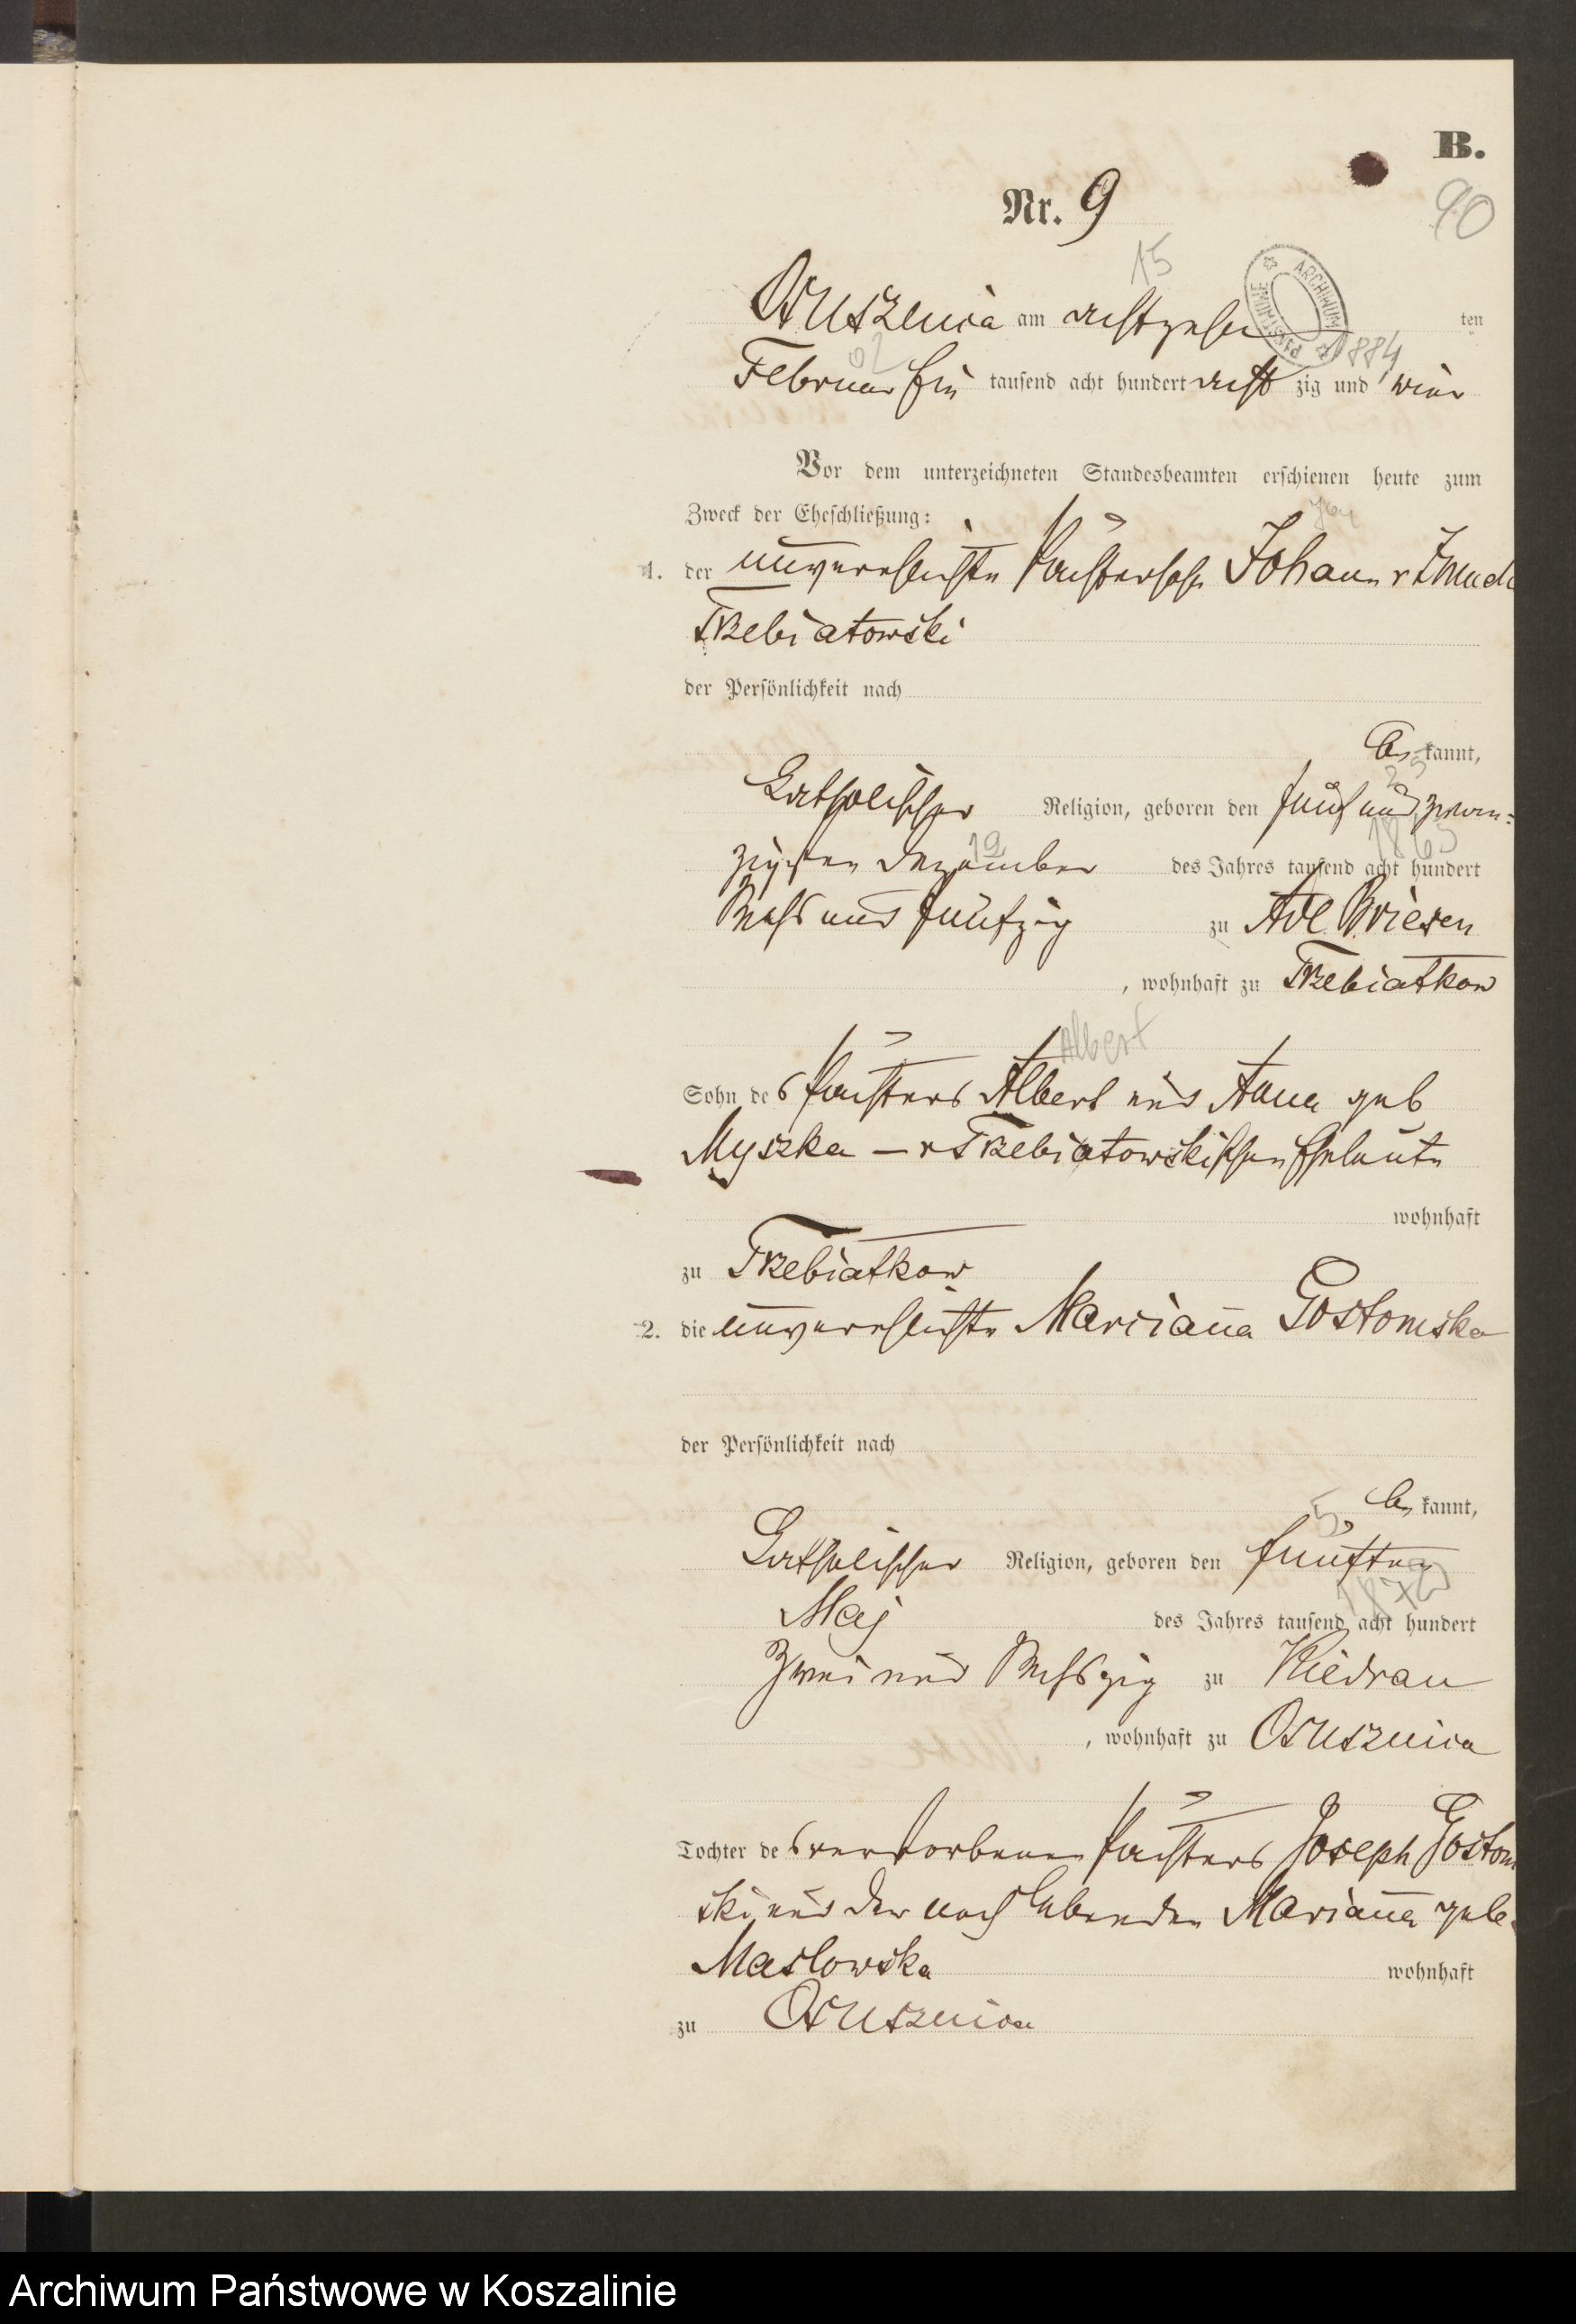 B.
Nr. 9
90
15
Osusznica am achtzehn ten
02 1884
Februar Ein tausend acht hundert acht zig und vier
Vor dem unterzeichneten Standesbeamten erschienen heute zum
Zweck der Eheschließung:
1. der unverehelichte Johann v
Trzebiatowski
der Persönlichkeit nach
be kannt,
25
Katholischer Religion, geboren den fünf und zwan-
12
zigsten Dezember des Jahres tausend acht hundert
sechs und fünfzig zu Adl. Briesen
, wohnhaft zu Trzebiatkow
Albert
Sohn des Albert und Anna geb
Myszka – v Trzebiatowskischen Eheleute
wohnhaft
zu Trzebiatkow
2. die unverehelichte Marcianna Gostomska
der Persönlichkeit nach
be kannt,
5
Katholischer Religion, geboren den fünften
Maj des Jahres tausend acht hundert
zwei und sechszig zu Kiedrau
, wohnhaft zu Osusznica
Tochter des verstorbenen Joseph Gostom
ski und der noch lebenden Marianna gebo
Maslowska wohnhaft
zu Osusznica
ARCHIWUM PAŃSTWOWE
Archiwum Państwowe w Koszalinie